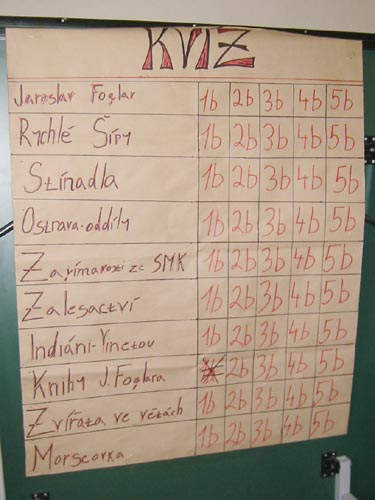 KVIZ
Jaroslav Foglar 1b 2b 3b 4b 5b
Rychlé Šípy 1b 2b 3b 4b 5b
Stínadla 1b 2b 3b 4b 5b
Ostrava-oddíly 1b 2b 3b 4b 5b
Zajímavosti ze SMK 1b 2b 3b 4b 5b
Zálesáctví 1b 2b 3b 4b 5b
Indiáni-Vinetou 1b 2b 3b 4b 5b
Knihy J. Foglara 2b 3b 4b 5b
Zvířata ve větách 1b 2b 3b 4b 5b
Morseovka 1b 2b 3b 4b 5b